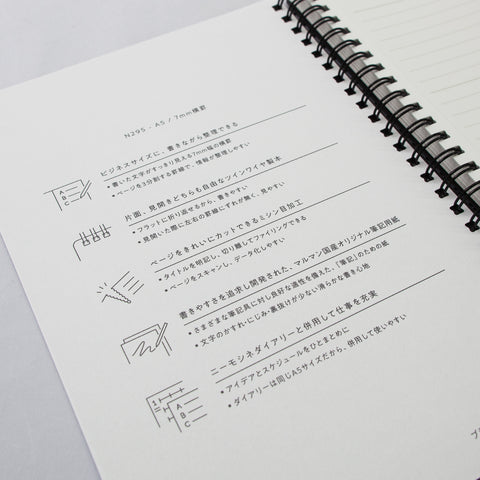 N295 - A5 / 7mm横罫
ビジネスサイズに、書きながら整理できる
• 書いた文字がすっきり見える7mm幅の横罫
• ページを3分割する罫線で、情報が整理しやすい
A
B
C
片面、見開きどちらも自由なツインワイヤ製本
• フラットに折り返せるから、書きやすい
• 見開いた際に左右の罫線にずれが無く、見やすい
ページをきれいにカットできるミシン目加工
• タイトルを明記し、切り離してファイリングできる
• ページをスキャンし、データ化しやすい
書きやすさを追求し開発された、マルマン国産オリジナル筆記用紙
• さまざまな筆記具に対し良好な適性を備えた、「筆記」のための紙
• 文字のかすれ・にじみ・裏抜けが少ない滑らかな書き心地
ニーモシネダイアリーと併用して仕事を充実
• アイデアとスケジュールをひとまとめに
• ダイアリーは同じA5サイズだから、併用して使いやすい
1
A
B
C